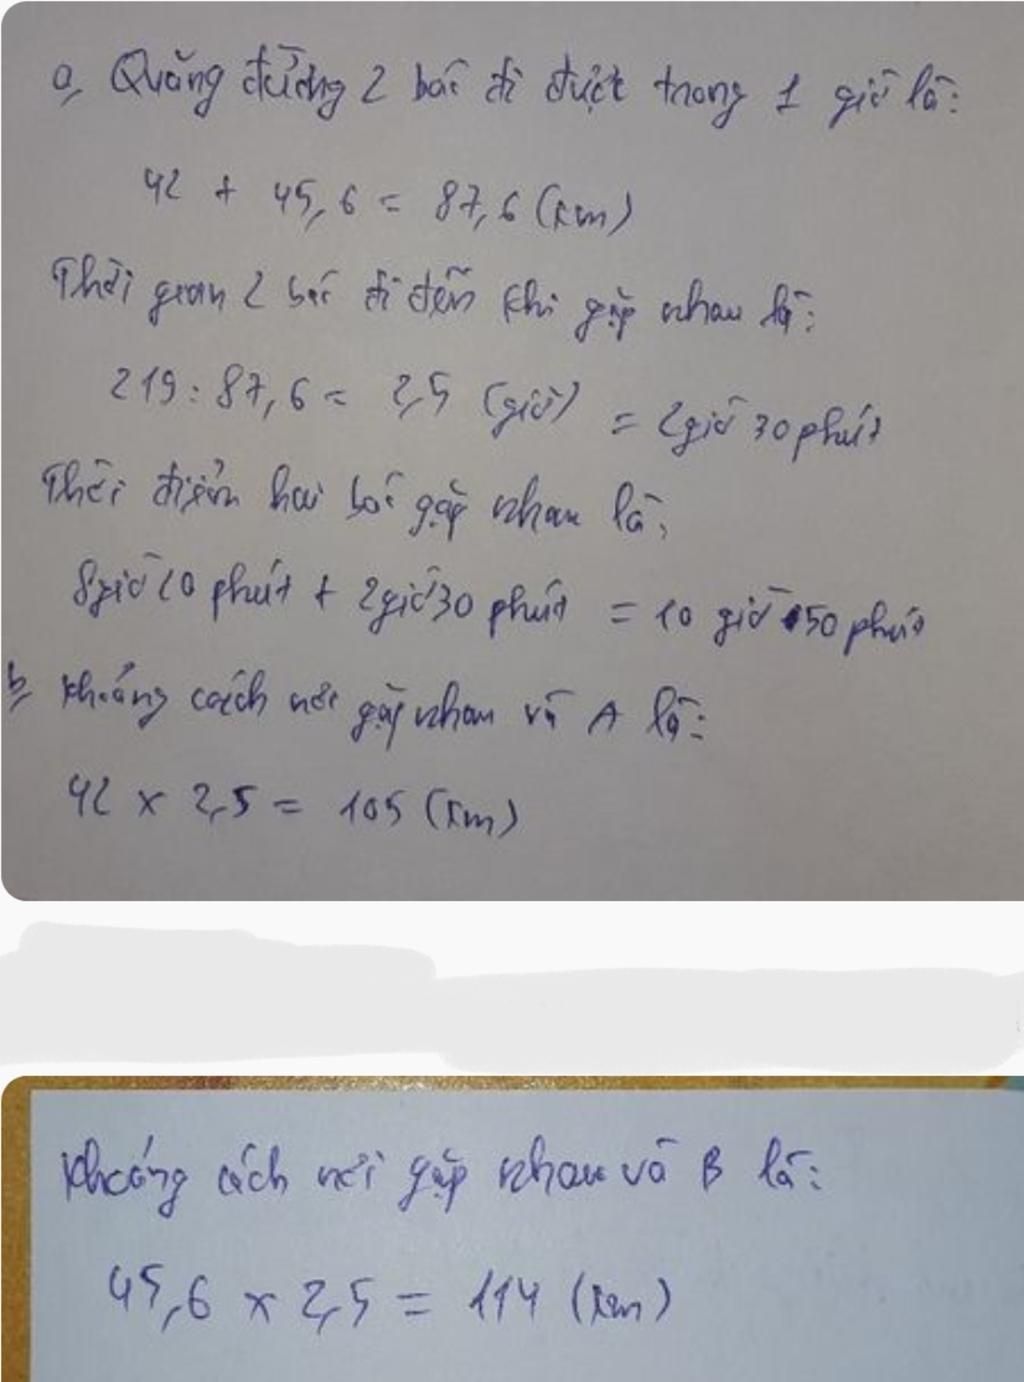 a, Quãng đường 2 bác đi được trong 1 giờ là:
42 + 45,6 = 87,6 (km)
Thời gian 2 bác đi đến khi gặp nhau là:
219 : 87,6 = 2,5 (giờ) = 2 giờ 30 phút
Thời điểm hai bác gặp nhau là:
8 giờ 20 phút + 2 giờ 30 phút = 10 giờ 50 phút
b, Khoảng cách nơi gặp nhau và A là:
42 x 2,5 = 105 (km)
Khoảng cách nơi gặp nhau và B là:
45,6 x 2,5 = 114 (km)